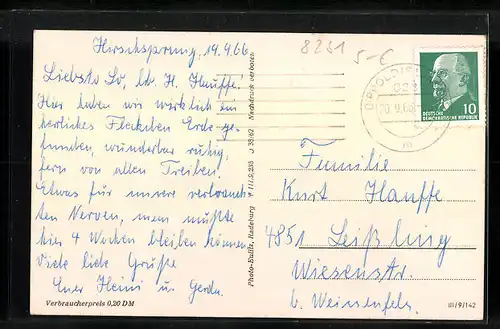 Hirschsprung, 19.9.66
Liebste Lo, lb. H. Hauffe!
Hier haben wir wirklich ein
herrliches Fleckchen Erde ge-
funden, wunderbar ruhig,
fern von allem Treiben.
Etwas für unsere verbrauch-
ten Nerven, man müßte
hier 4 Wochen bleiben können
Viele liebe Grüße
Euer Heini u. Gerda.
Verbraucherpreis 0,20 DM
Photo-Bulla, Nachdruck verboten.
8251
5-€
DEUTSCHE
DEMOKRATISCHE REPUBLIK
10
Familie
Kurt Hauffe
4851 Leißling
Wiesenstr.
b. Weissenfels
III/9/142